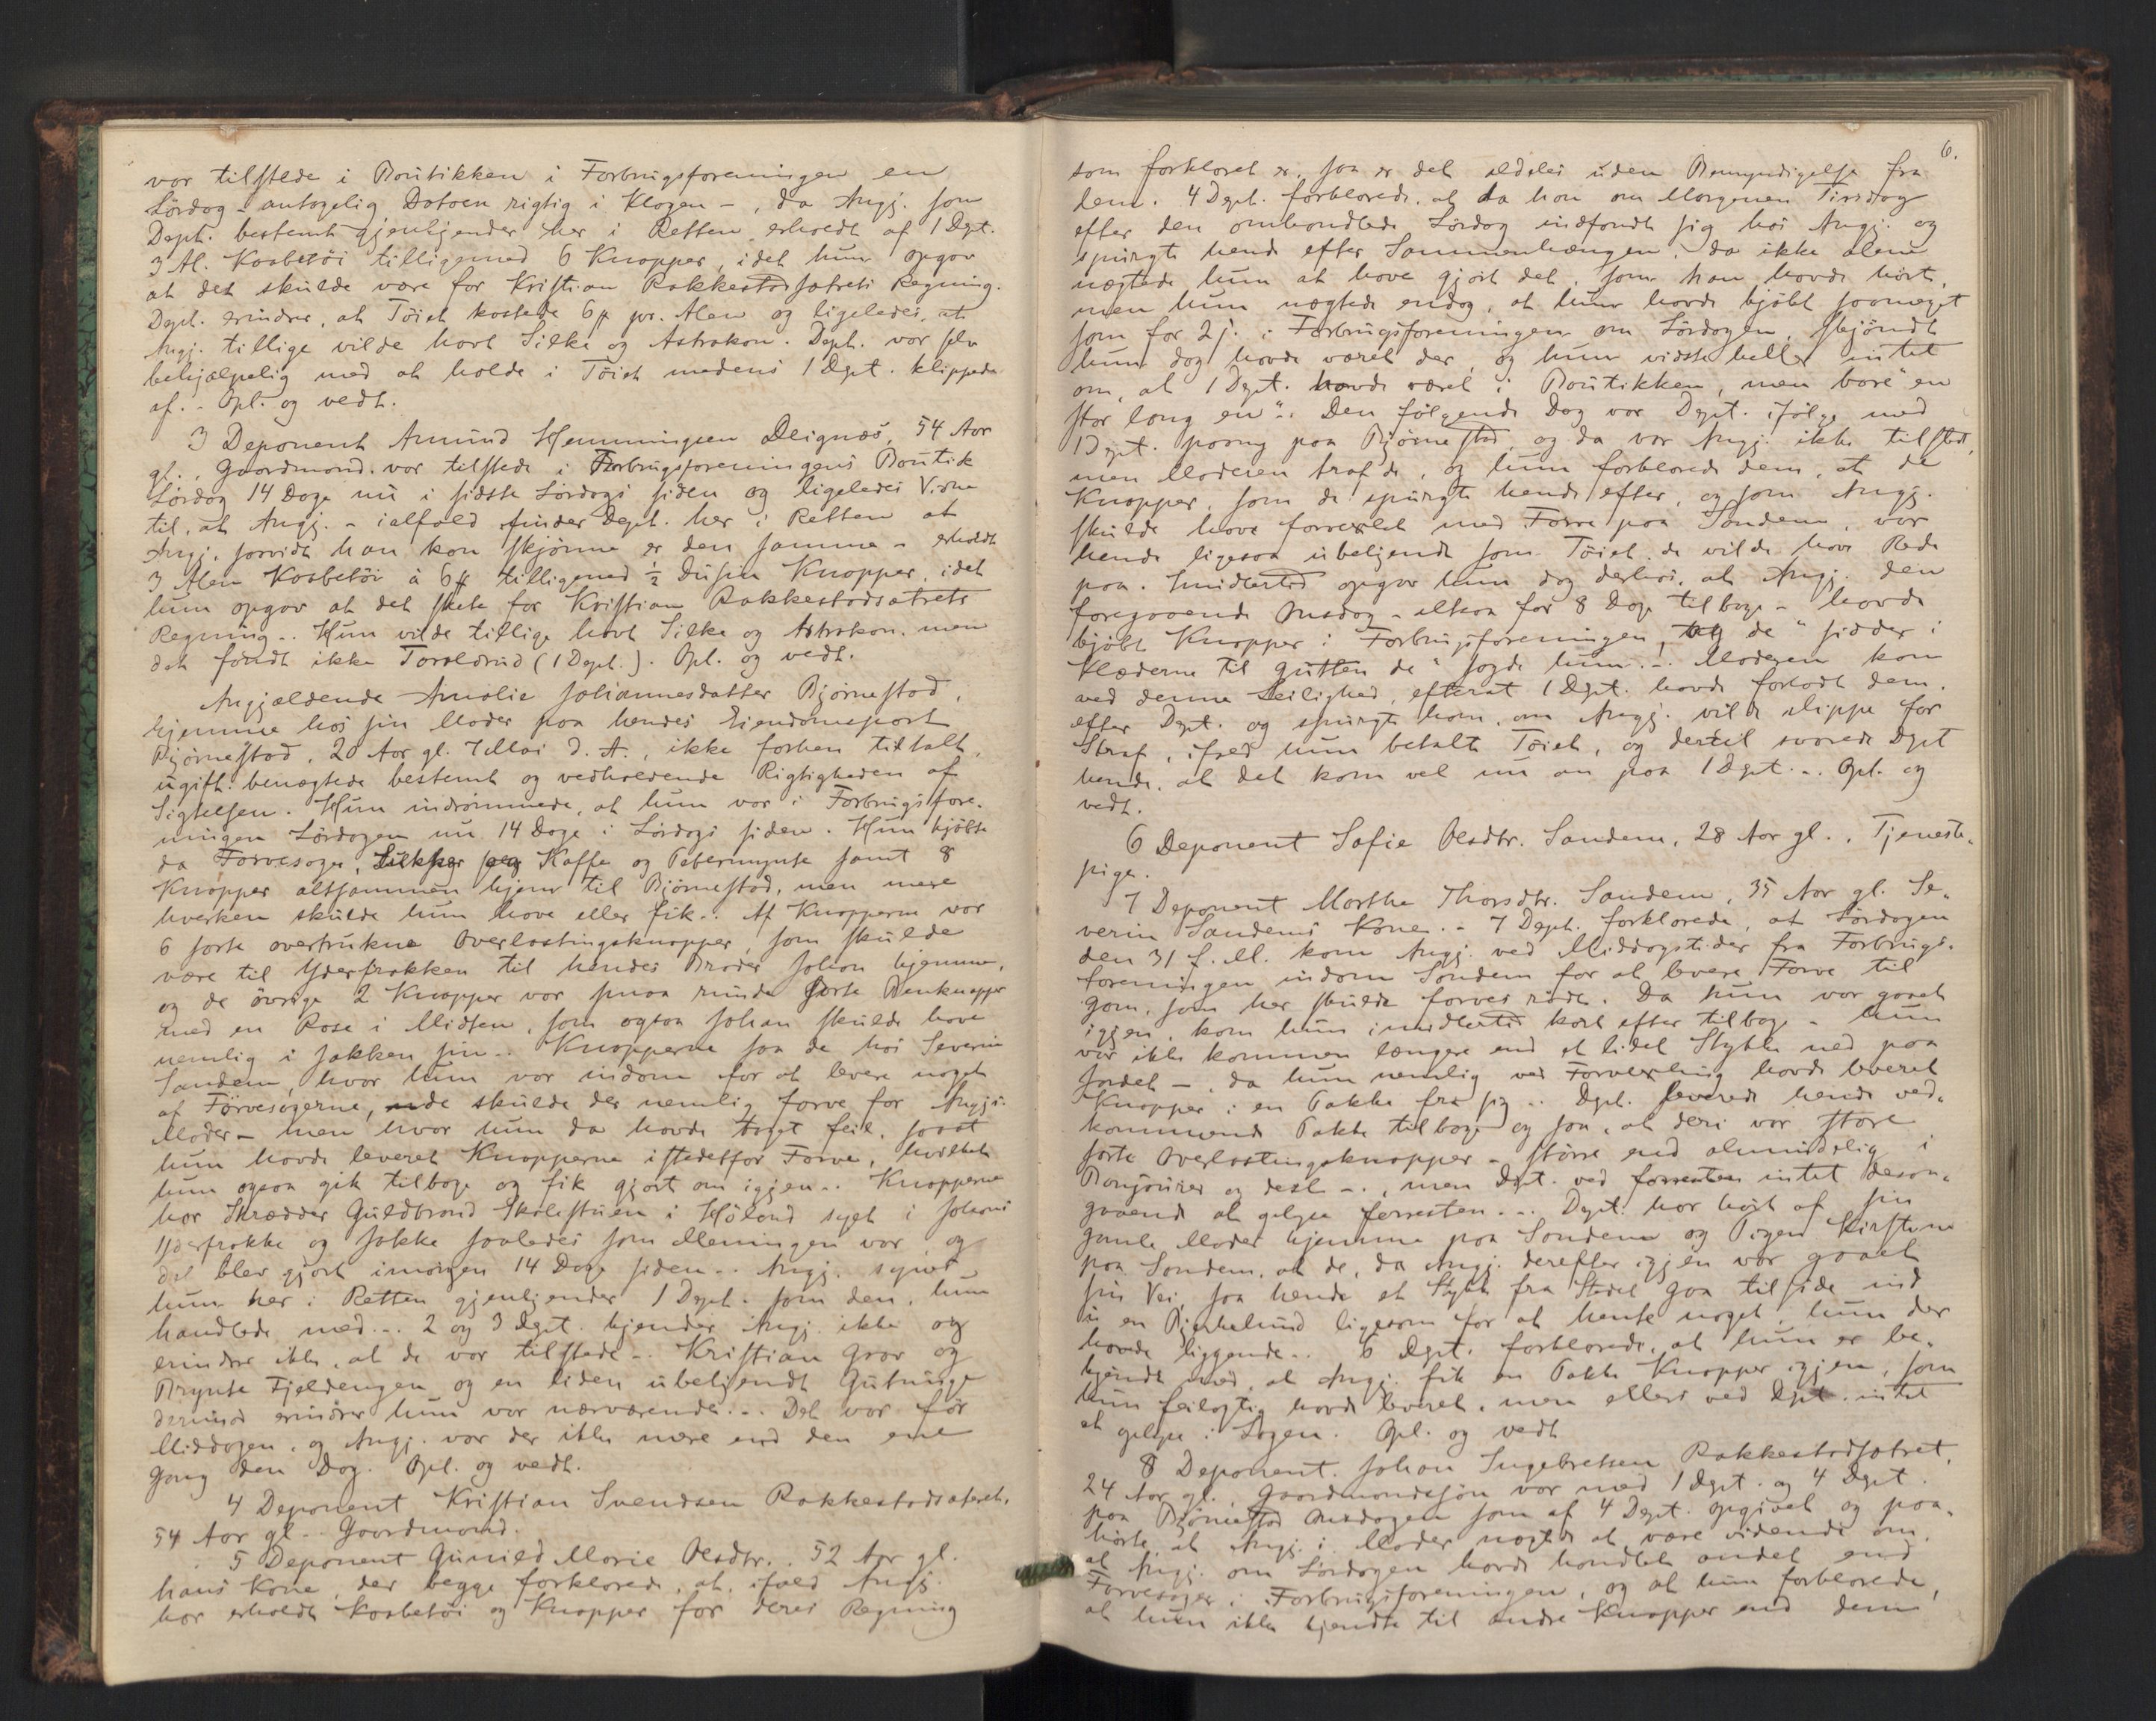 var tilstede i Boutikken i Forbrugsforeningen en
Lördag – antagelig Datoen rigtig i Klagen –, da Angj. som
Dept. bestemt gjenkjender her i Retten erholdt af 1 Dept.
3 Al. Kaabetöi tilligemed 6 Knapper, idet hun opgav
at det skulde være for Kristian Rakkestadsætrets Regning.
Dept. erindrer, at Töiet kostede 6 pr. Alen og ligeledes, at
Angj. tillige vilde havt Silke og Astrakan. Dept. var selv
behjælpelig med at holde i Töiet medens 1 Dept. klippede
af. – Opl. og vedt.
3 Deponent Amund Hemmingsen 54 Aar
gl., Gaardmand. var tilstede i Forbrugsforeningens Boutik
Lördag 14 Dage nu i sidste Lördags siden og ligeledes Vidne
til, at Angj. – ialfald finder Dept. her i Retten at
Angj. saavidt han kan skjönne er den samme – erholdt
3 Alen Kaabetöi à 6 tilligemed ½ Dusin Knapper, idet
hun opgav at det skete for Kristian Rakkestadsætrets
Regning. – Hun vilde tillige havt Silke og Astrakan. men
det fandt ikke Toraldrud (1 Dept.). Opl. og vedt.
Angjældende Amalie Johannesdatter Bjørnestad,
hjemme hos sin Moder paa hendes Eiendomspart
Bjørnestad, 20 Aar gl. 7 Mai d. A., ikke forhen tiltalt,
ugift. benægtede bestemt og vedholdende Rigtigheden af
Sigtelsen. Hun indrömmede, at hun var i Forbrugsfore-
ningen Lördagen nu 14 Dage i Lördags siden. Hun kjöbte
da Farvesager, Kaffe og Pebermynte samt 8
Knapper altsammen hjem til Bjørnestad, men mere
hverken skulde hun have eller fik. – Af Knapperne var
6 sorte overtrukne Overlastingsknapper, som skulde
være til Yderfrakken til hendes Broder Johan hjemme,
og de övrige 2 Knapper var smaa runde sorte Benknapper
med en Rose i Midten, som ogsaa Johan skulde have
nemlig i Jakken sin. – Knapperne saa de hos Severin
Sandem, hvor hun var indom for at levere noget
af Farvesagerne, de skulde der nemlig farve for Angjs.
Moder – men hvor hun da havde taget feil, saa at
hun havde leveret Knapperne istedetfor Farve, hvilket
hun ogsaa gik tilbage og fik gjort om igjen. – Knapperne
har Skrædder Guldbrand Skolestuen i Höland syet i Johans
Yderfrakke og Jakke saaledes som Meningen var, og
det blev gjort imorgen 14 Dage siden. – Angj. synes
hun her i Retten gjenkjender 1 Dept. som den, hun
handlede med. – 2 og 3 Dept. kjender Angj. ikke og
erindrer ikke, at de var tilstede. – Kristian Grav og
Brynte Fjeldengen og en liden ubekjendt Gutunge
derimod erindrer hun var nærværende. – Det var för
Middagen, og Angj. var der ikke mere end den ene
Gang den Dag. Opl. og vedt.
4 Deponent Kristian Svendsen Rakkestadsæteret,
54 Aar gl. – Gaardmand.
5 Deponent Gunild Marie Olsdtr. 52 Aar gl.
hans Kone, der begge forklarede, at, ifald Angj.
har erholdt Kaabetöi og Knapper for deres Regning
6.
som forklaret er, saa er det aldeles uden Bemyndigelse fra
dem. 4 Dept. forklarede, at da han om Morgenen Tirsdag
efter den omhandlede Lördag indfandt sig hos Angj. og
spurgte hende efter Sammenhængen, da ikke alene
nægtede hun at have gjort det, som han havde hört,
men hun nægtede endog, at hun havde kjöbt saameget
som for 2 i Forbrugsforeningen om Lördagen, skjöndt
hun dog havde været der, og hun vidste heller intet
om, at 1 Dept. havde været i Boutikken, men bare "en
stor lang en". Den følgende Dag var Dept. ifölge med
1 Dept. paany paa Bjørnestad, og da var Angj. ikke tilstede,
men Moderen traf de, og hun forklarede dem, at de
Knapper, som de spurgte hende efter, og som Angj.
skulde have forvexlet med Farve paa Sandem, var
hende ligesaa ubekjendt som Töiet de vilde have Rede
paa. Imidlertid opgav hun dog derhos, at Angj. den
foregaaende Onsdag – altsaa for 8 Dage tilbage – havde
kjöbt Knapper i Forbrugsforeningen, og de "sidder i
Klæderne til Gutten de" sagde hun. – Moderen kom
ved denne Leilighed, efterat 1 Dept. havde forladt dem,
efter Dept. og spurgte ham, om Angj. vilde slippe for
Straf, ifald hun betalte Töiet, og dertil svarede Dept
hende, at det kom vel nu an paa 1 Dept. – Opl. og
vedt.
6 Deponent Sofie Olsdtr. Sandem, 28 Aar gl., Tjeneste-
pige.
7 Deponent Marthe Thorsdtr. Sandem, 35 Aar gl. Se-
verin Sandems Kone. – 7 Dept. forklarede, at Lördagen
den 31 f. M. kom Angj. ved Middagstider fra Forbrugs-
foreningen indom Sandem for at levere Farve til
Garn, som her skulde farves rödt. Da hun var gaaet
igjen, kom hun imidlertid kort efter tilbage – hun
var ikke kommen længere end et lidet Stykke ned paa
Jordet –, da hun nemlig ved Forvexling havde leveret
Knapper i en Pakke fra sig. – Dept. leverede hende ved-
kommende Pakke tilbage og saa, at deri var store
sorte Overlastingsknapper – större end almindelig i
Bonjourer og desl. –, men Dept. ved forresten intet desan-
gaaende at oplyse forresten. – Dept. har hört af sin
gamle Moder hjemme paa Sandem og Pigen Kirstine
paa Sandem, at de, da Angj. derefter igjen var gaaet
sin Vei, saa hende et Stykke fra Stedet gaa tilside ind
i en Bjerkelund ligesom for at hente noget, hun der
havde liggende. – 6 Dept. forklarede, at hun er be-
kjendt med, at Angj. fik en Pakke Knapper igjen, som
hun feilagtig havde leveret, men ellers ved Dept. intet
at oplyse i Sagen. Opl. og vedt
8 Deponent. Johan Ingebretsen Rakkestadsætret,
24 Aar gl., Gaardmandssön var med 1 Dept. og 4 Dept.
paa Bjørnestad Onsdagen som af 4 Dept. opgivet og paa-
hörte, at Angj.s Moder nægtede at være vidende om,
at Angj. om Lördagen havde handlet andet end
Farvesager i Forbrugsforeningen, og at hun forklarede,
at hun ikke kjendte til andre Knapper end dem